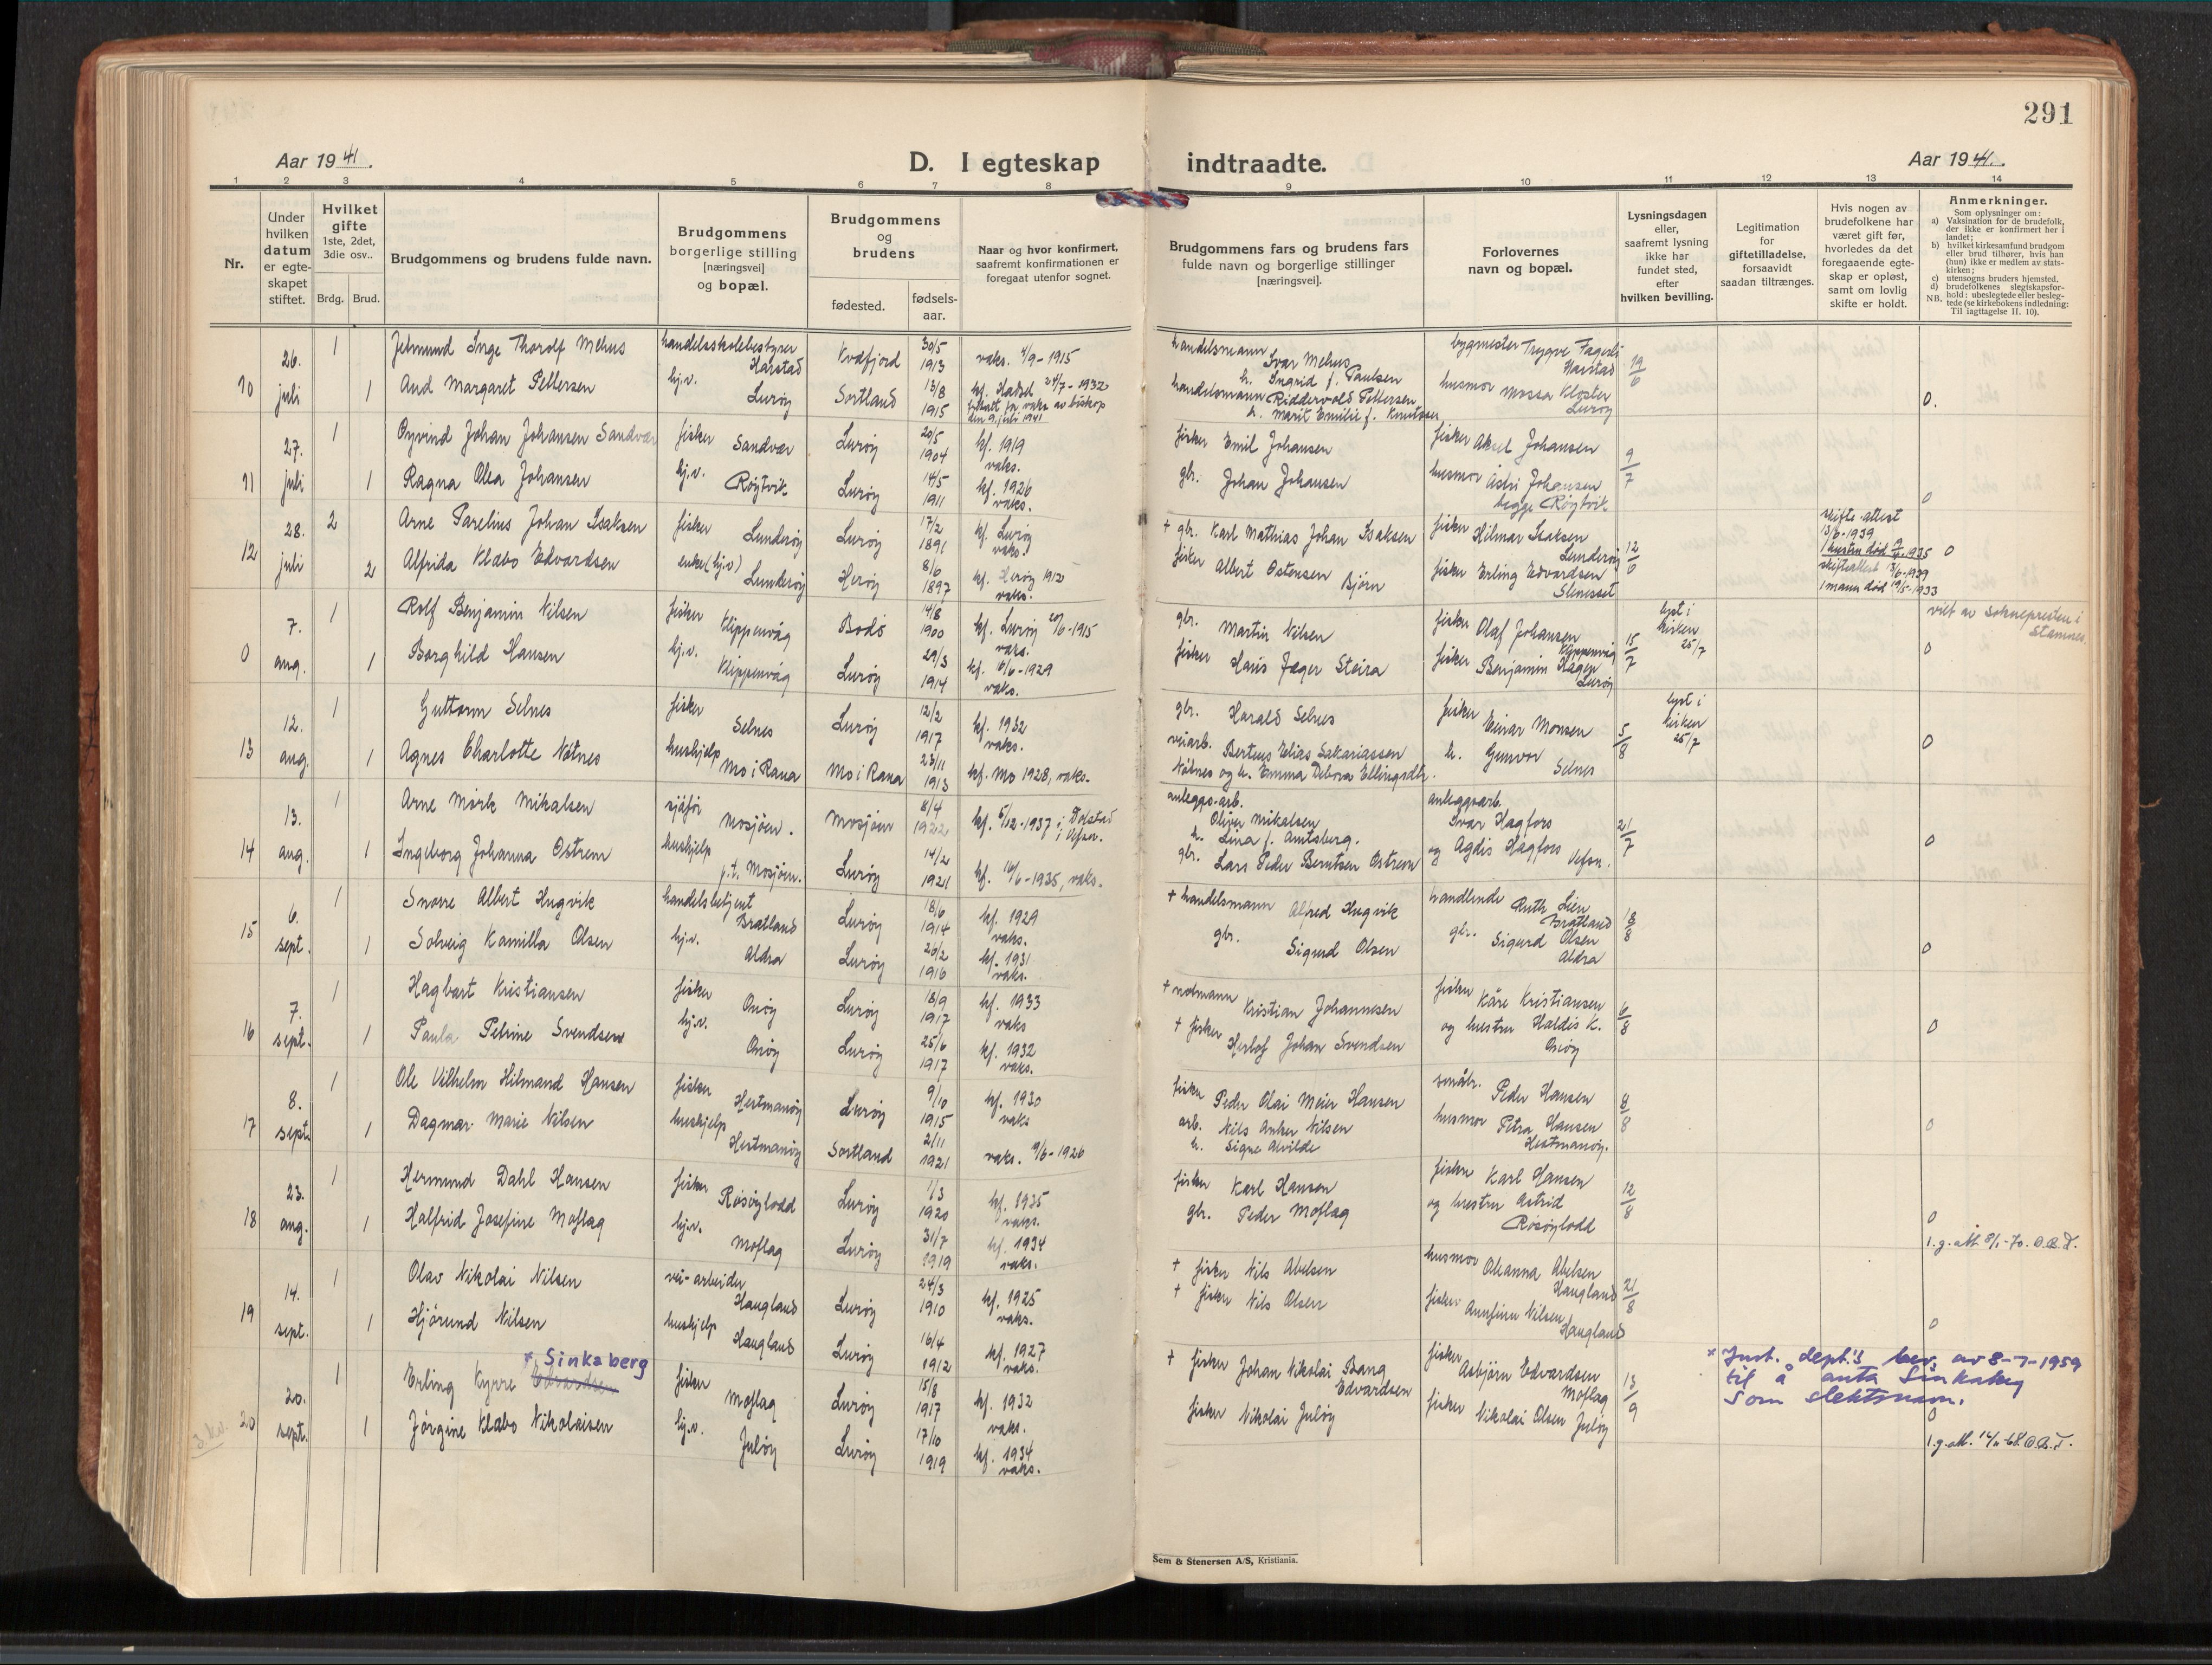 291
Aar 1941.
D. I egteskap indtraadte.
Aar 1941.
1 2 3 4 5 6 7 8 9 10 11 12 13 14
Nr.
Under hvilken datum er egte-skapet stiftet.
Hvilket gifte 1ste, 2det, 3die osv..
Brdg. Brud.
Brudgommens og brudens fulde navn.
Brudgommens borgerlige stilling [næringsvei] og bopæl.
Brudgommens og brudens
fødested.
fødsels-aar.
Naar og hvor konfirmert, saafremt konfirmationen er foregaat utenfor sognet.
Brudgommens fars og brudens fars fulde navn og borgerlige stillinger [næringsvei].
Forlovernes navn og bopæl.
Lysningsdagen eller, saafremt lysning ikke har fundet sted, efter hvilken bevilling.
Legitimation for giftetilladelse, forsaavidt saadan tiltrænges.
Hvis nogen av brudefolkene har været gift før, hvorledes da det foregaaende egte-skap er opløst, samt om lovlig skifte er holdt.
Anmerkninger.
Som oplysninger om:
a) Vaksination for de brudefolk, der ikke er konfirmert her i landet;
b) hvilket kirkesamfund brudgom eller brud tilhører, hvis han (hun) ikke er medlem av stats-kirken;
c) utensogns bruders hjemsted.
d) brudefolkenes slegtskapsfor-hold: ubeslegtede eller besleg-tede (se kirkebokens indledning:
NB. Til iagttagelse II. 10).
10 26. juli
1 Inge Thorolf Mehus handelsskolebestyrer Harstad Kvæfjord 30/5 1913 vaks. 4/9-1915
1 Aud Margaret Pettersen hj.v. Lurøy Sortland 13/8 1915 kf. Hadsel 24/7-1932
fritatt for vaks av biskop den 9. juli 1941
handelsmann Ivar Mehus
h. Ingrid f. Paulsen
handelsmann Riddervold Pettersen
h. Marit Emilie f. Knutsen
bygmester Trygve Fagerli Harstad
husmor Mossa Kloster Lurøy
19/6 0.
11 27. juli
1 Øyvind Johan Johansen Sandvær fisker Sandvær Lurøy 20/5 1904 kf. 1919 vaks.
1 Ragna Olea Johansen hj.v. Røytvik Lurøy 14/5 1911 kf. 1926 vaks.
fisker Emil Johansen
gbr. Johan Johansen
fisker Aksel Johansen
husmor Astri Johansen
begge Røytvik
9/7 0
12 28. juli
2 Arne Parelius Johan Isaksen fisker Lunderøy Lurøy 17/2 1891 kf. Lurøy vaks.
2 Alfrida Klæbo Edvardsen enke (hj.v) Lunderøy Herøy 8/6 1897 kf. Herøy 1912 vaks.
+ gbr. Karl Mathias Johan Isaksen
fisker Albert Ostensen Bjørn
fisker Hilmar Isaksen Lunderøy
fisker Erling Edvardsen
12/6
skifte attest
13/6-1939
1 hustru død 1935
skifteattest 3/6-1939
1 mann død 19/5-1933
0
0 7. aug.
1 Rolf Benjamin Nilsen fisker Klippenvåg Bodø 14/8 1900 kf. Lurøy 20/6-1915 vaks.
1 Borghild Hansen hj.v. Klippenvåg Lurøy 29/3 1914 kf. 16/6-1929 vaks.
gbr. Martin Nilsen
fisker Hans Jæger Steira
fisker Olaf Johansen Klippenvåg
fisker Benjamin Hagen Lurøy
15/7
lyst i kirken 25/7
viet av soknepresten i Stamnes.
0
13 12. aug.
1 Guttorm Selnes fisker Selnes Lurøy 12/2 1917 kf. 1932 vaks.
1 Agnes Charlotte Nötnes hushjelp Mo i Rana Mo i Rana 23/11 1913 kf. Mo 1928, vaks.
gbr. Harald Selnes
veiarb. Berteus Elias Sakariassen
Nötnes og h. Emma Debora Ellingsdtr.
fisker Einar Monsen
h. Gunvor Selnes
5/8
lyst i kirken 25/7
0
14 13. aug.
1 Arne Mörk Mikalsen sjåfør Mosjöen. Mosjöen 8/4 1922 kf. 5/12-1937 i Dolstad i Vefsn.
1 Ingeborg Johanna Ostrem hushjelp p.t. Mosjöen. Lurøy 14/2 1921 kf. 16/6-1935, vaks.
anleggs-arb. Oliver Mikalsen
h. Lina f. Amtsberg.
gbr. Lars Peder Berntsen Ostrem
anleggsarb. Ivar Hagfors
og Agdis Hagfors Vefsn.
21/7 0
15 6. sept.
1 Snorre Albert Hugvik handelsbetjent Bratland Lurøy 18/6 1914 kf. 1929 vaks.
1 Solveig Kamilla Olsen hj.v. Aldra Lurøy 20/2 1916 kf. 1931 vaks.
+ handelsmann Alfred Hugvik
gbr. Sigurd Olsen
handlende Ruth Lien Bratland
gbr. Sigurd Olsen Aldra
18/8 0
16 7. sept.
1 Hagbart Kristiansen fisker Onøy Lurøy 18/9 1917 kf. 1933 vaks
1 Paula Petrine Svendsen hj.v. Onøy Lurøy 25/6 1917 kf. 1932 vaks.
+ notmann Kristian Johannesen
+ fisker Herlof Johan Svendsen
fisker Kåre Kristiansen
og hustru Haldis K. Onøy
6/8 0
17 8. sept.
1 Ole Vilhelm Hilmand Hansen fisker Hestmanøy Lurøy 9/10 1915 kf. 1930 vaks
1 Dagmar Marie Nilsen hushjelp Hestmanøy Sortland 2/11 1921 vaks. 9/6-1926
fisker Peder Olai Meier Hansen
arb. Nils Anker Nilsen
h. Signe Alvilde
småbr. Peder Hansen
husmor Petra Hansen Hestmanøy.
8/8 0
18 23. aug.
1 Hermund Dahl Hansen fisker Røsøylodd Lurøy 1/3 1920 kf. 1935 vaks.
1 Halfrid Josefine Moflag hj.v. Moflag Lurøy 31/7 1919 kf. 1934 vaks.
fisker Karl Hansen
gbr. Peder Moflag
fisker Karl Hansen
og hustru Astrid Røsøylodd
12/8 0
1.g.att 8/1-70. O.B.T.
19 14. sept.
1 Olav Nikolai Nilsen vei-arbeider Haugland Lurøy 24/3 1910 kf. 1925 vaks.
1 Hjørund Nilsen hushjelp Haugland Lurøy 16/4 1912 kf. 1927 vaks.
+ fisker Nils Abelsen
+ fisker Nils Olsen
husmor Oleanna Abelsen Haugland
fisker Annfinn Nilsen Haugland
21/8 0
3. kv. 20 20. sept.
× Sinkaberg
1 Erling Kyrre Edvardsen fisker Moflag Lurøy 15/8 1917 kf. 1932 vaks.
1 Jørgine Klæbo Nikolaisen hj.v. Juløy Lurøy 17/10 1919 kf. 1934 vaks.
+ fisker Johan Nikolai Bang Edvardsen
fisker Nikolai Juløy
fisker Asbjørn Edvardsen Moflag
fisker Nikolai Olsen Juløy
13/9
× Just. dept.'s bev. av 8-7-1959
til å anta Sinkaberg
som slektsnavn.
0
1.g.att. 14/11-68. O.B.T.
Sem & Stenersen A/S, Kristiania.